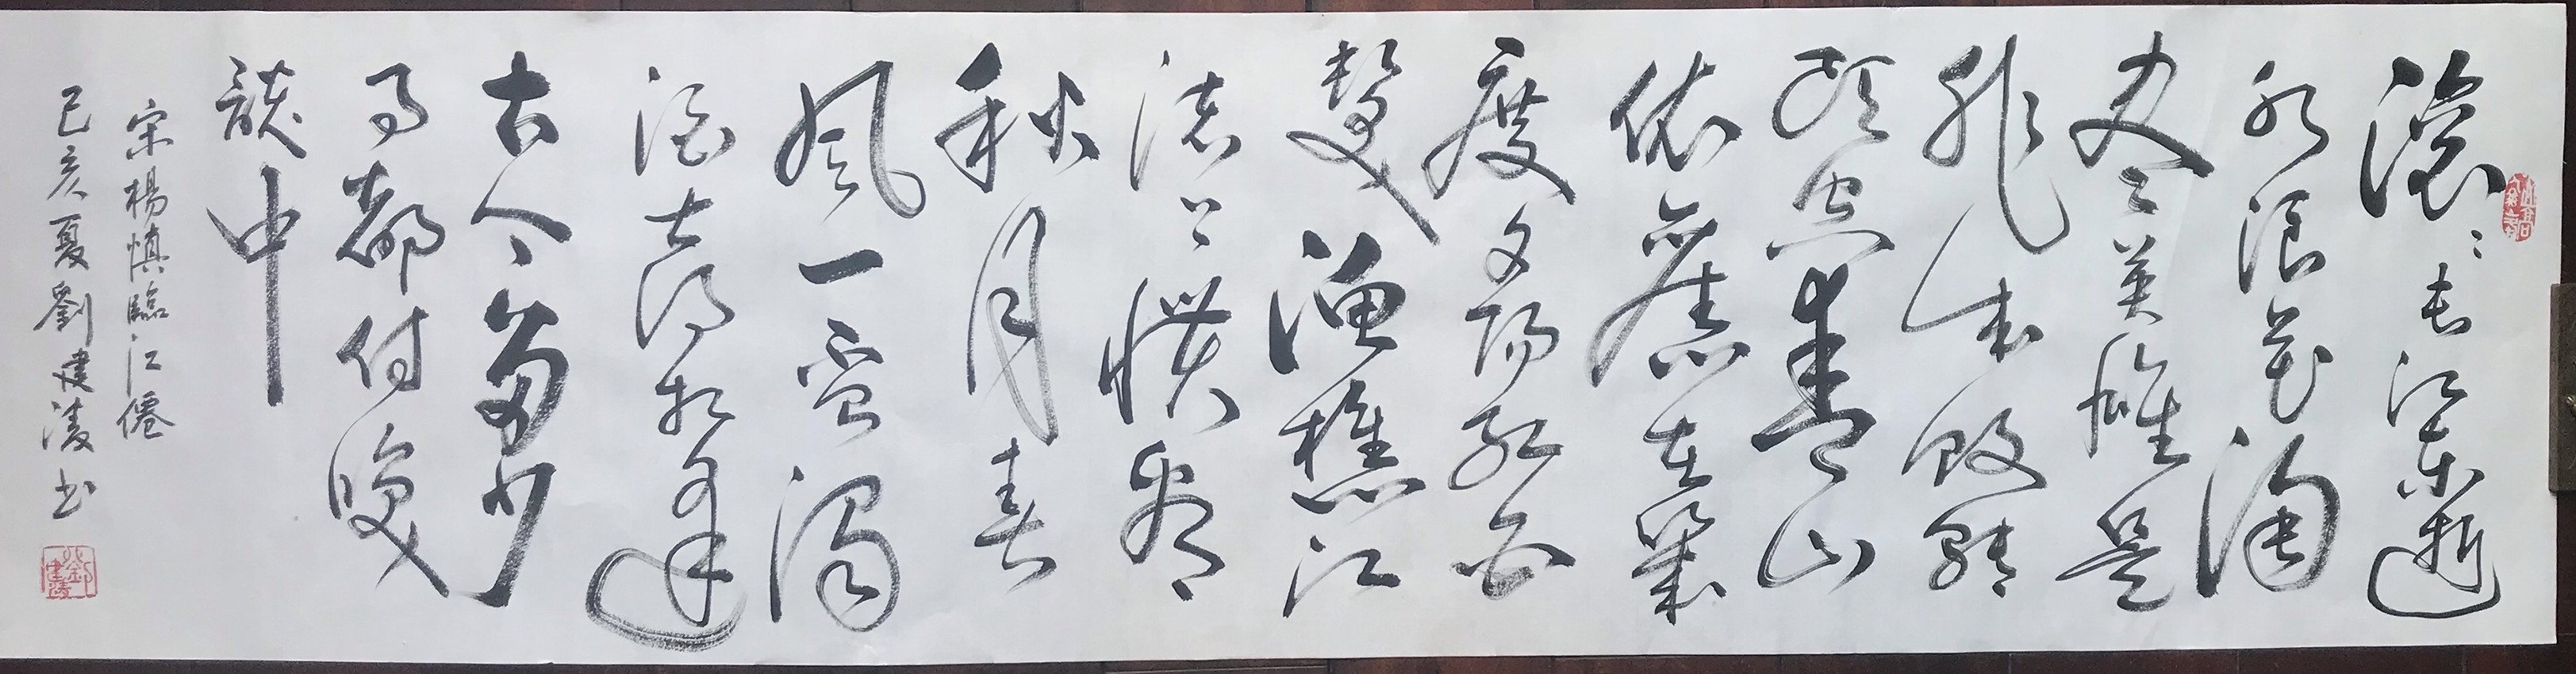 滾〻長江東逝
水浪花淘
尽英雄是
非成敗轉
頭空青山
依舊在幾
度夕陽紅白
髮漁樵江
渚上慣看
秋月春
風一壺濁
酒喜得相逢
古今多少
事都付笑
談中
宋楊慎臨江僊
己亥夏劉建淩书